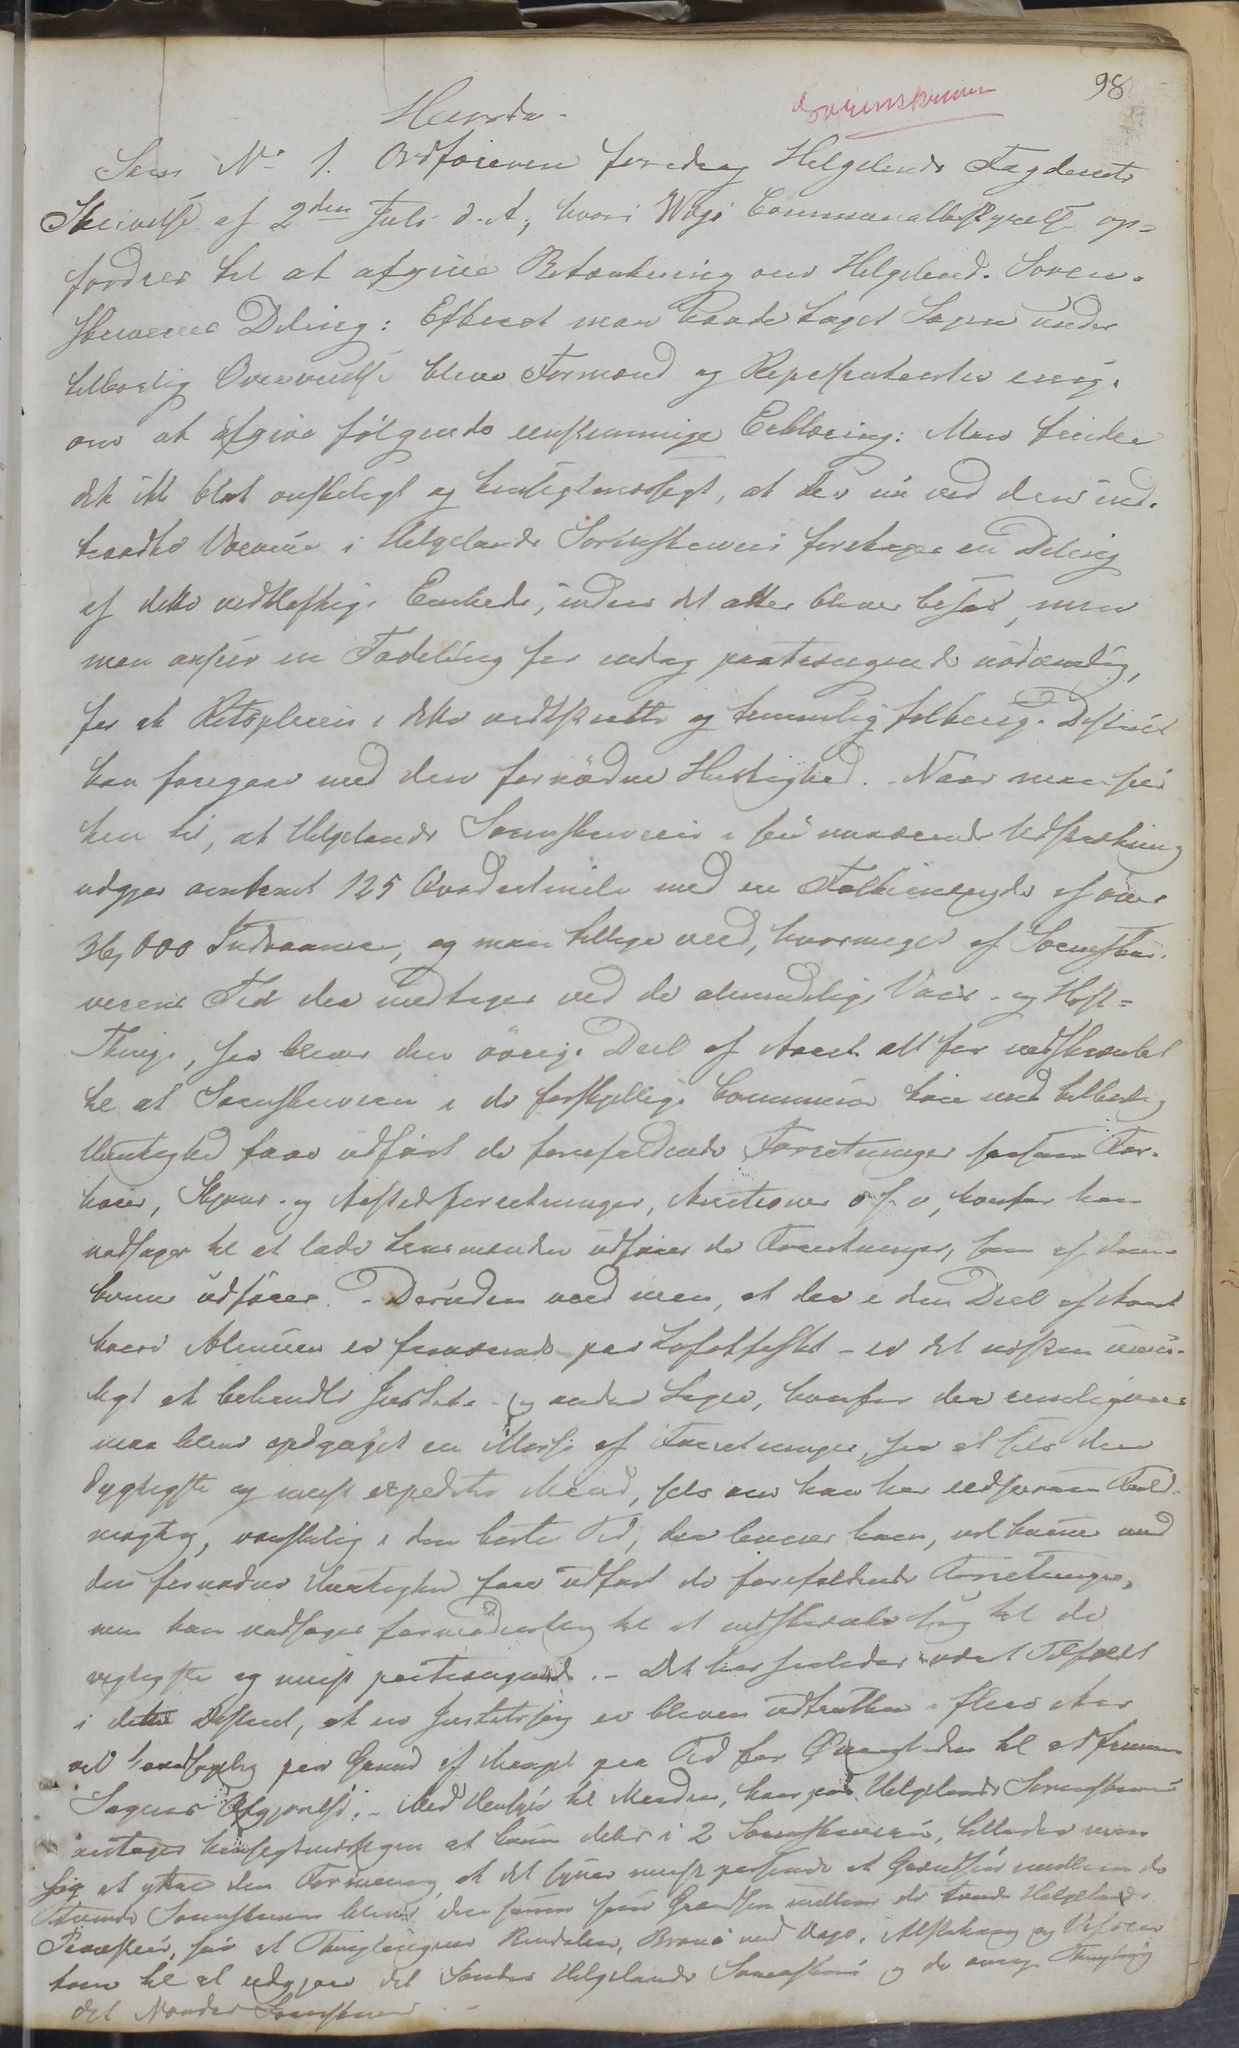 98
Sorenskriveren
Hensde.
Sag No 1. Ordføreren foredrog Helgelands Fogderies
Skrivelse af 2den Juli d. A., hvori Vegø Communalbestyrelse op-
fordres til at afgive Betænkning om Helgeland. Soren-
skriveries Deling: Efterat man havde taget Sagen under
tilbørlig Overveielse bleve Formænd og Repræsentanter enig.
om at afgive følgende eenstemmige Erklæring: Man finder
det ikke blot ønskeligt og hensigtsmæssigt, at der nu ved den ind-
traadte Vacance i Helgelands Sorenskriveri foretages en Deling
af dette vidtløftige Embede, inden det atter bliver besat, men
man anseer en Todeling for endog paatrængende nødvendig,
for at Retspleien i dette vidtstrakte og temmelig folkerige Distrikt
kan foregaae med den fornødne Hurtighed. - Naar man seer
hen til, at Helgelands Sorenskriveri i sin nuværende Udstrækning
udgjør omtrent 125 Qvadratmile med en Folkemængde af over
36,000 Indvaanere, og man tillige veed, hvormeget af Sorenskri-
verens Tid der medtages ved de almindelige Vaar- og Høst-
Thinge, saa bliver den øvrige Deel af Aaret alt for indskrænket
til at Sorenskriveren i de forskjellige Communer kan med tilbørlig
Hurtighed faae udført de forefaldende Forretninger saasom For-
hører, Skjøns- og Aastedsforretninger, Auctioner o. s. v., hvorfor han
nødsages til at lade Lensmænden udføre de Forretninger, som af dem
kunne udføres. - Desuden veed man, at der i den Deel af Aaret
hvori Almuen er fraværende paa Lofotfisket - er det næsten umu-
ligt at behandle Justits- og andre Sager, hvorfor der
maa blive opdynget en Masse af Forretninger, saa at selv den
dygtigste og meest expedite Mand, selv om han har Fuld-
mægtig, vanskelig i den korte Tid, der levnes ham, vil kunne med
den fornødne Hurtighed faae udført de forefaldende Forretninger,
men han nødsages formodentlig til at indskrænke sig til de
vigtigste og meest paatrængende. - Det har saaledes været Tilfældet
i dette Distrikt, at en Justitssag er bleven udtrukken i flere Aar
paa Grund af Mangel paa Tid for til at fremme
Sagens Afgjørelse. - Med Hensyn til Maaden, hvorpaa Helgelands Sorenskriveri
antages hensigtsmæssigen at kunne deles i 2 Sorenskriverier, tillader man
sig at yttre den Formening, at det synes meest passende at Grændsen mellem de
tvende Sorenskriverier bliver den samme som Grændsen mellem de tvende Helgelands
Provstier, saa at Thinglagene Bindalen, Brønø med Vegø, Alstahaug og Vefsen
kom til at udgjøre det Søndre Helgelands Sorenskriveri og de øvrige Thinglag
det Nordre Sorenskriveri.